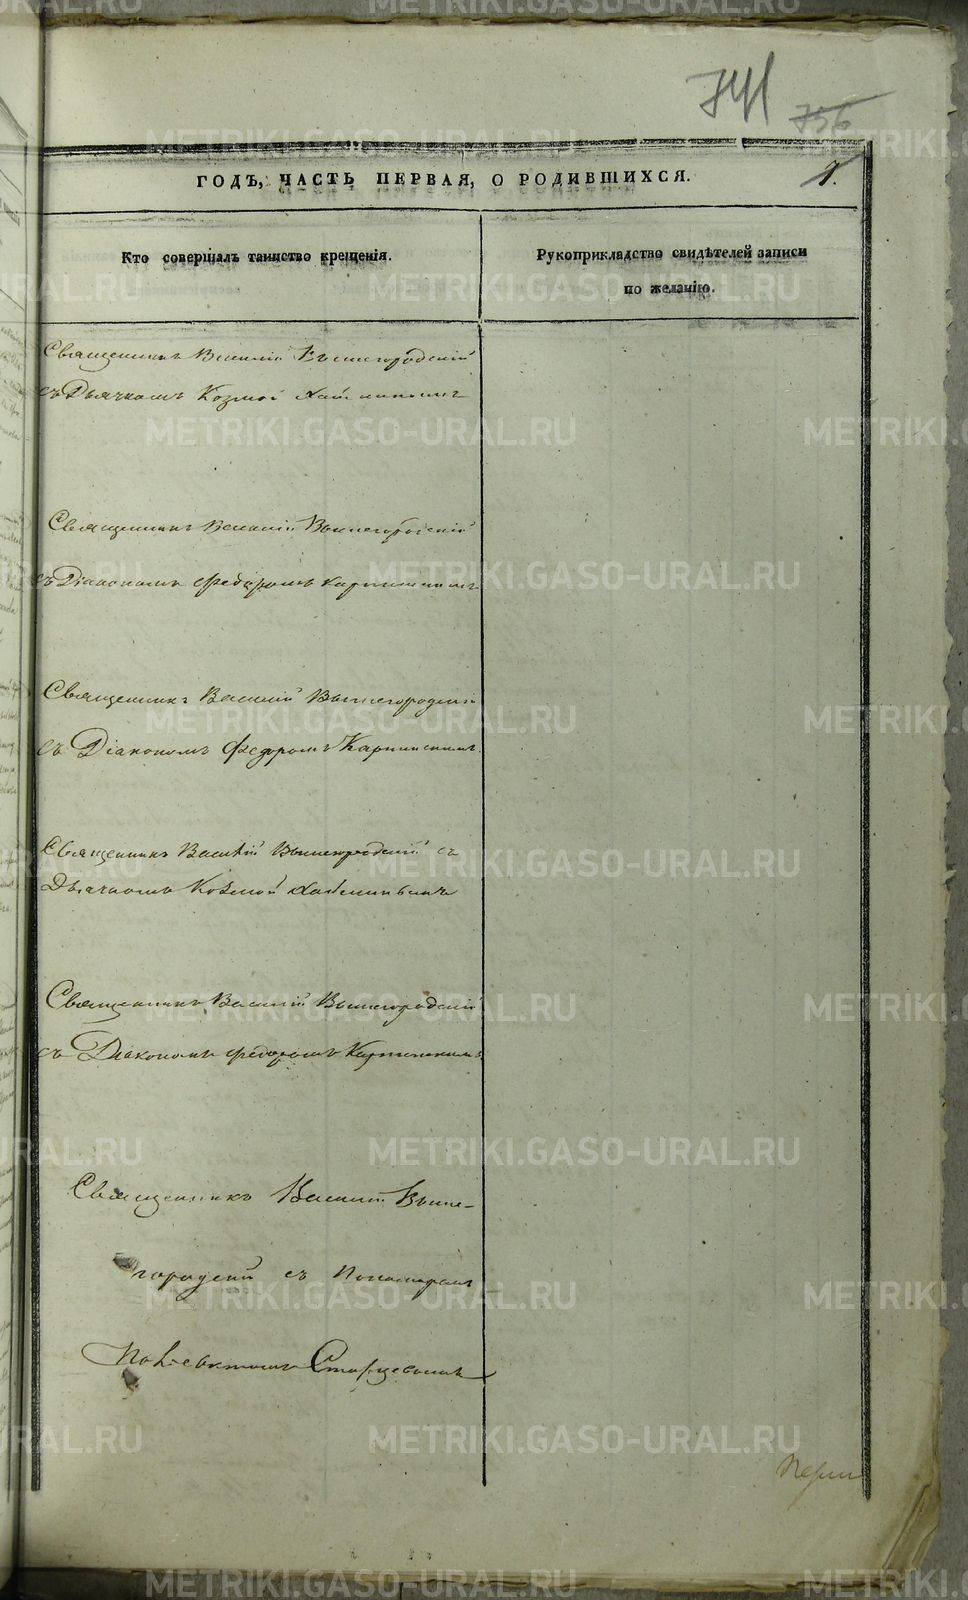 741 756
ГОДЪ, ЧАСТЬ ПЕРВАЯ, О РОДИВШИХСЯ. 1.
Кто совершалъ таинство крещенія.
Рукоприкладство свидѣтелей записи
по желанію.
Священникъ Василій Вышегородскій
съ Дьячкомъ Козмой
Священникъ Василій Вышегородскій
съ Діакономъ Федоромъ Карпинскимъ
Священникъ Василій Вышегородскій
съ Діакономъ Федоромъ Карпинскимъ
Священникъ Василій Вышегородскій съ
Дьячкомъ Козмой
Священникъ Василій Вышегородскій
съ Діакономъ Федоромъ Карпинскимъ
Священникъ Василій Выше-
городскій съ Пономаремъ
Поліевктомъ Старцевымъ
METRIKI.GASO-URAL.RU